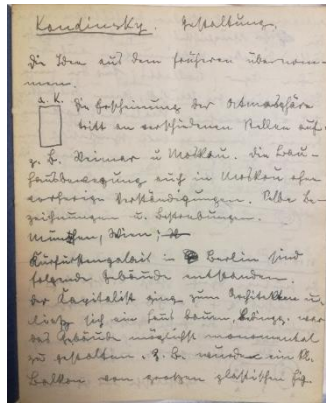 Kandinsky. Gestaltung.
Die Idee aus dem früheren übernom-
men.
a. K. Die Erscheinung der Atmosphäre
tritt an verschiedenen Stellen auf.
z. B. Weimar u Moskau. Die Bau-
hausbewegung auch in Moskau ohne
vorherige Verständigungen. Selbe Be-
zeichnungen u. Bestrebungen.
München, Wien;
Kurfürstengalait in Berlin sind
folgende Gebäude entstanden.
Der Kapitalist ging zum Architekten u.
ließ sich ein Haus bauen. war
das Gebäude möglichst monumental
zu gestalten. z. B. wurden ein kl.
Balkon von großen plastischen Fig.